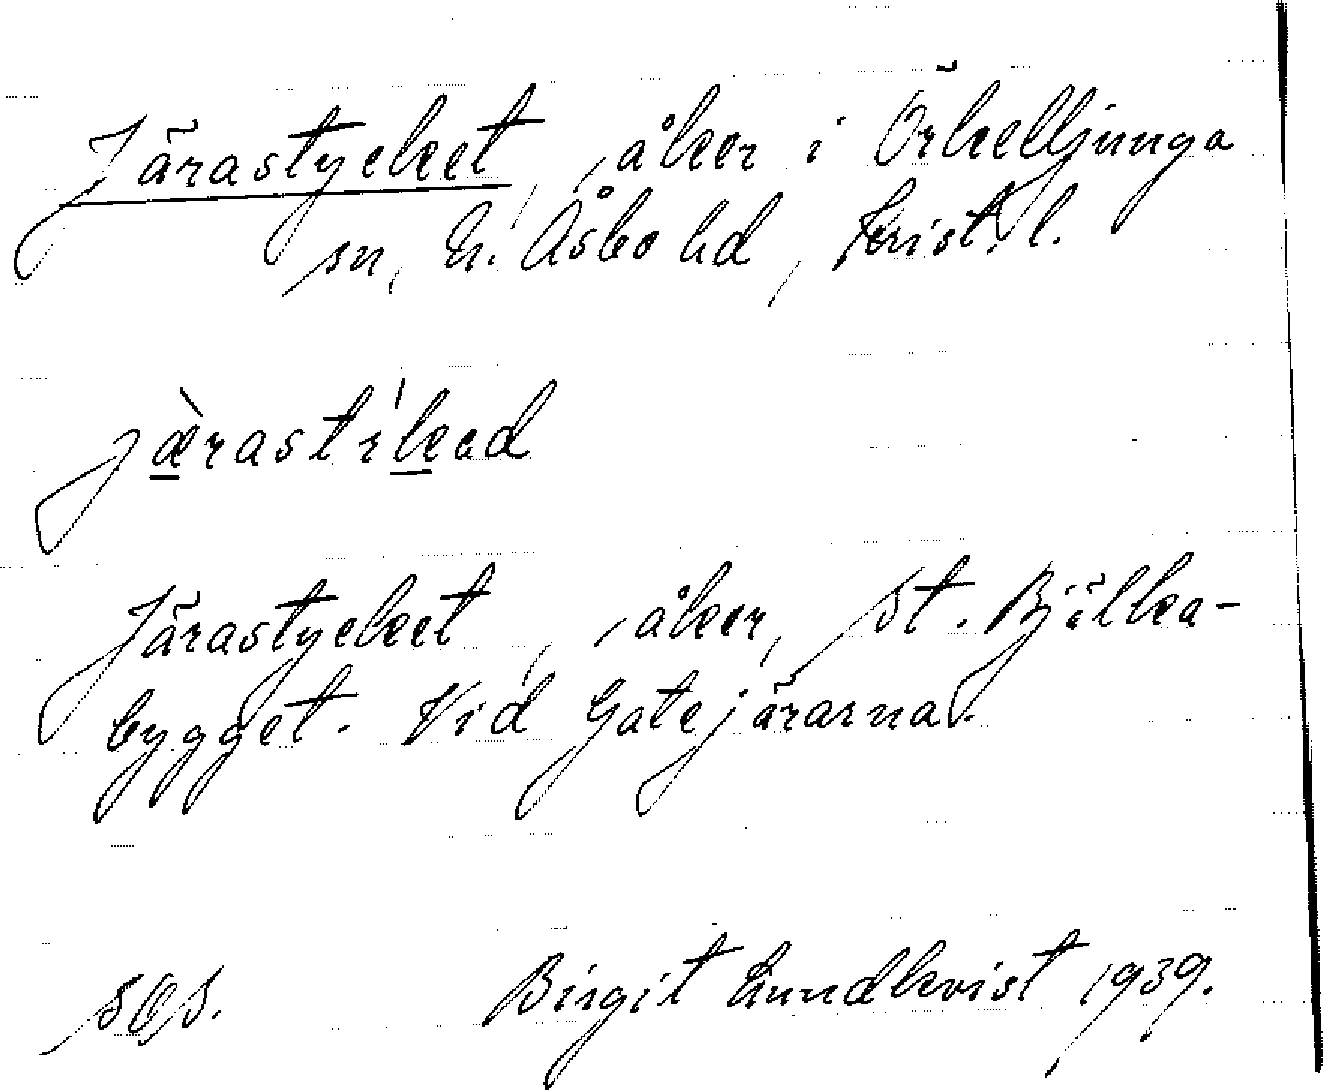 Järastycket, åker i Örkelljunga
sn, N. Åsbo hd, Krist. l.
jæ̀rastýkəd
Järastycket, åker, St. Bjälka-
bygget. Vid Gatejärarna.
Birgit Lundkvist 1939.